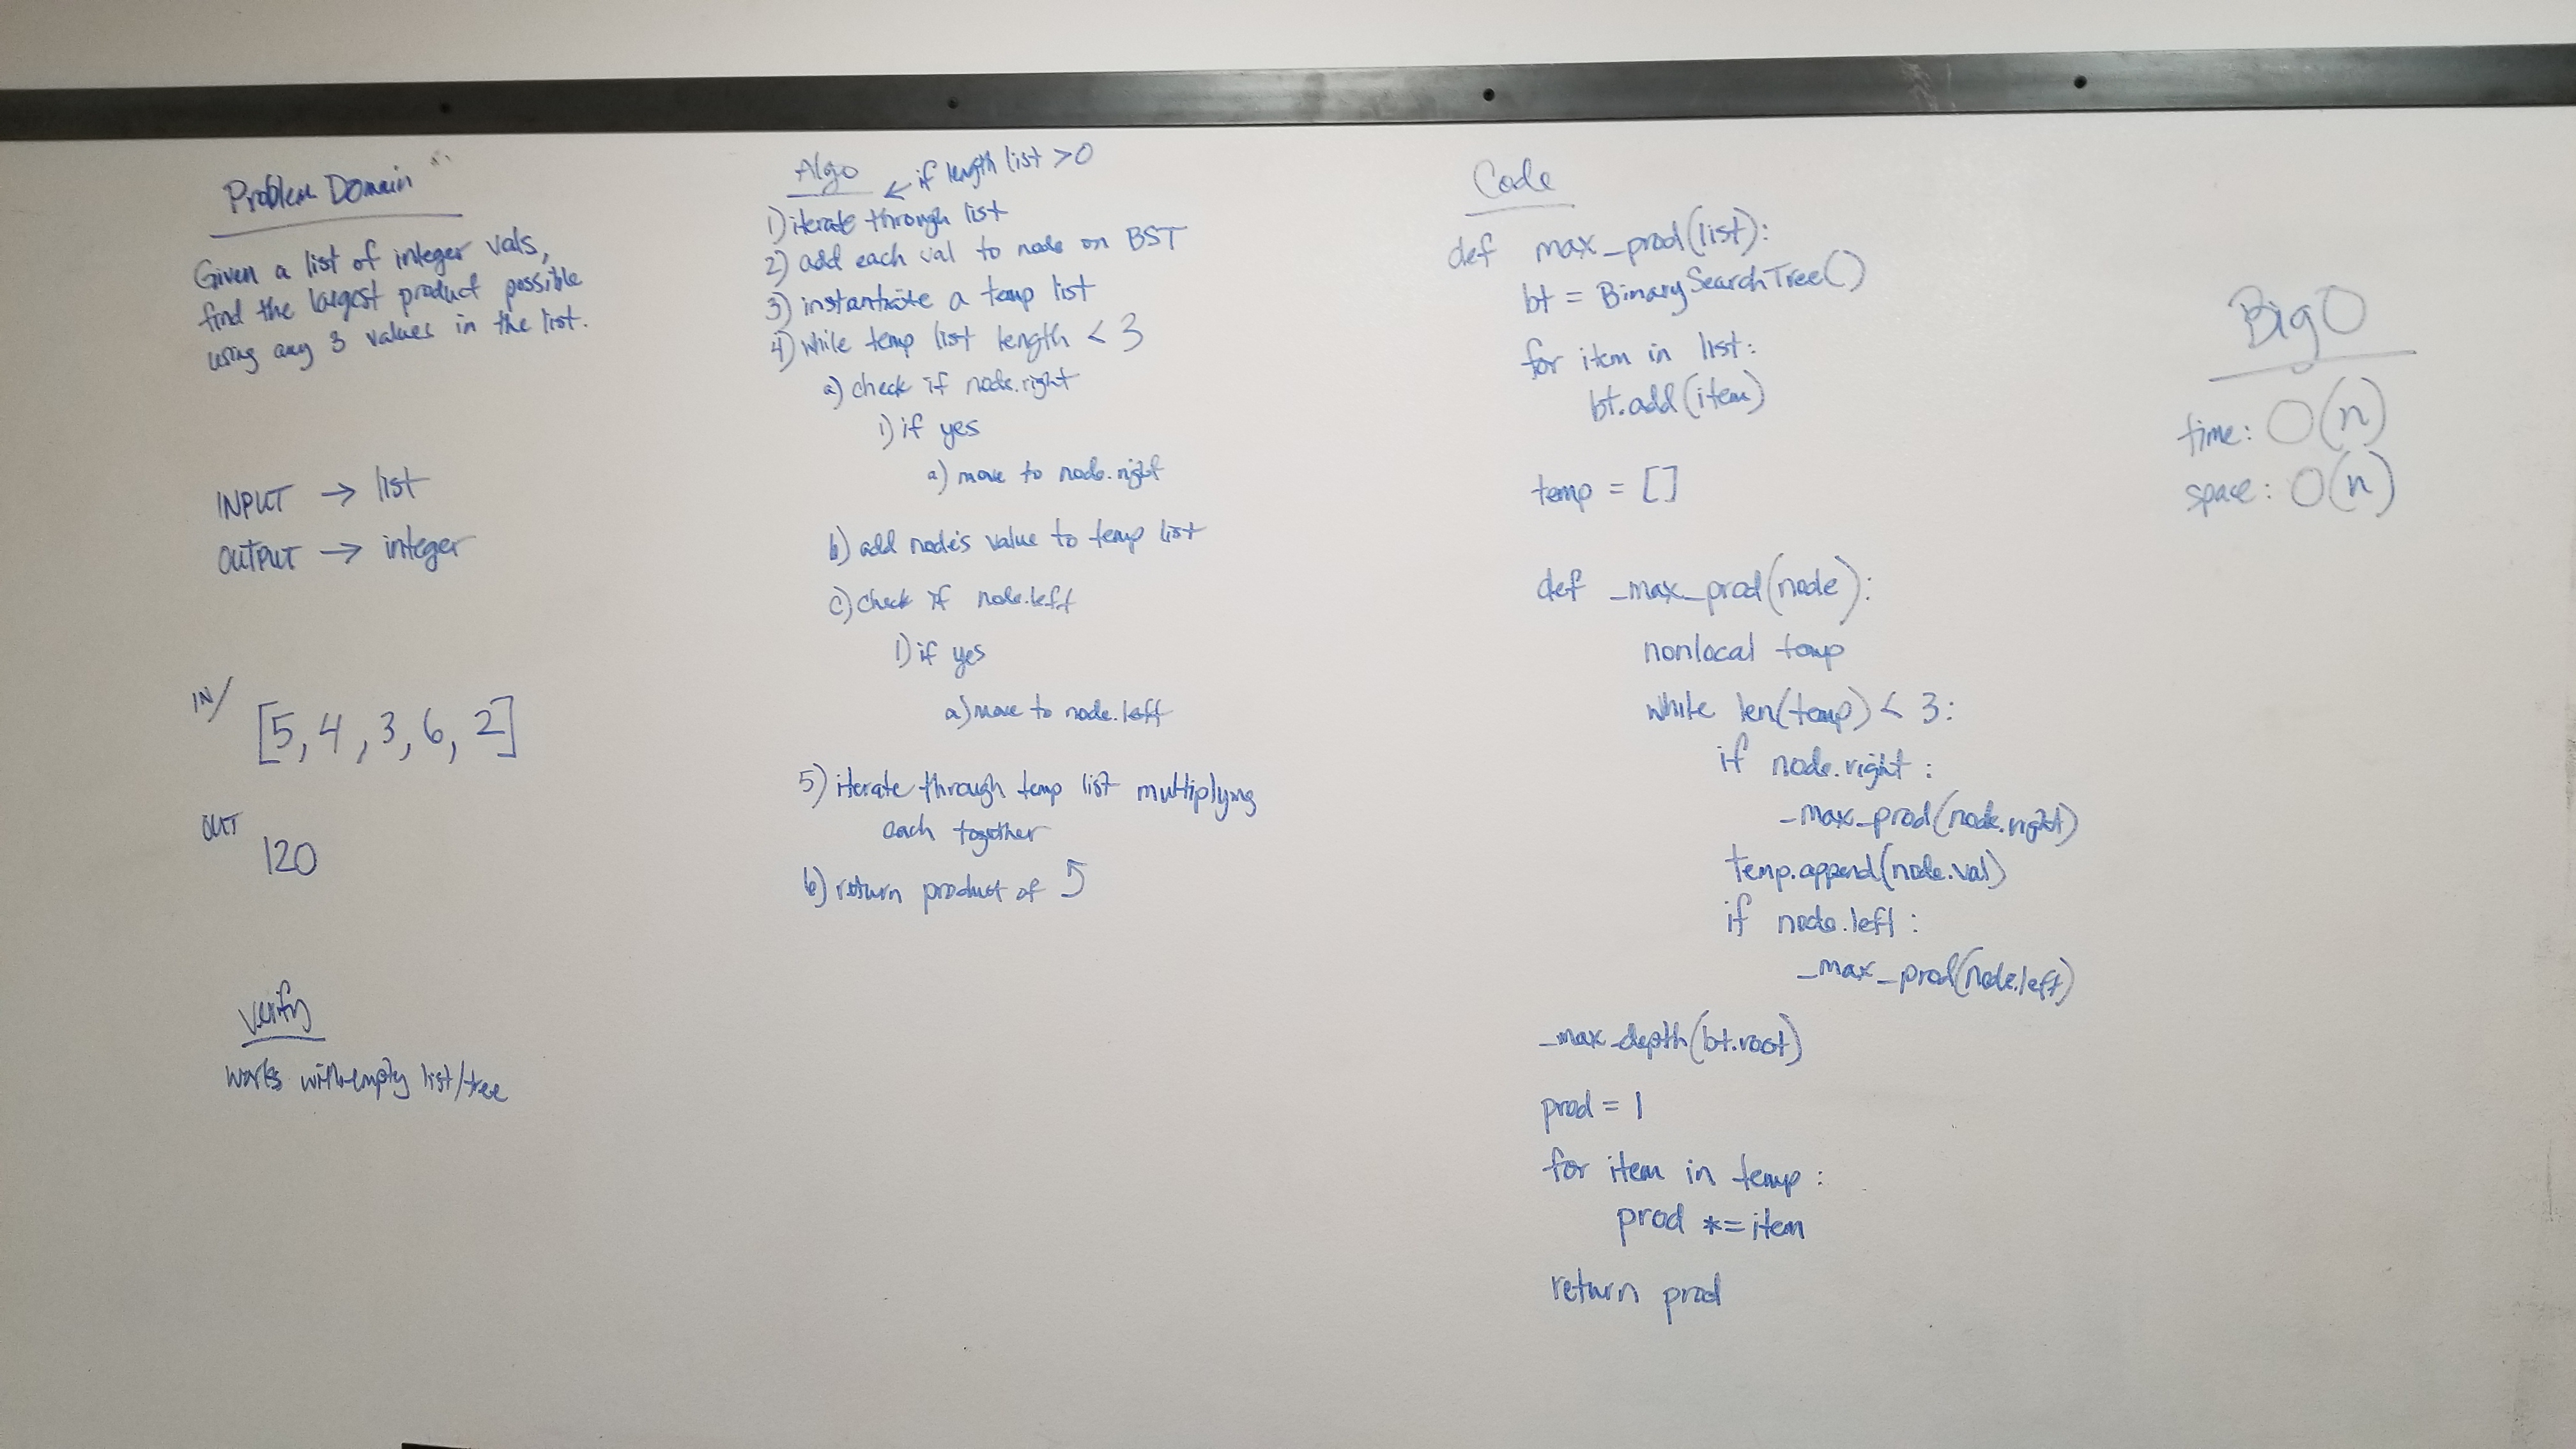 Problem Domain
Given a list of integer vals,
find the largest product possible
using any 3 values in the list.
INPUT → list
OUTPUT → integer
IN/
[5, 4, 3, 6, 2]
OUT
120
Verify
works with empty list/tree
Algo
← if length list > 0
1) iterate through list
2) add each val to node on BST
3) instantiate a temp list
4) while temp list length < 3
a) check if node.right
1) if yes
a) move to node.right
b) add node's value to temp list
c) check if node.left
1) if yes
a) move to node.left
5) iterate through temp list multiplying
each together
6) return product of 5
Code
def max_prod(list):
bt = BinarySearchTree()
for item in list:
bt.add(item)
temp = []
def _max_prod(node):
nonlocal temp
while len(temp) < 3:
if node.right:
_max_prod(node.right)
temp.append(node.val)
if node.left:
_max_prod(node.left)
_max_depth(bt.root)
prod = 1
for item in temp:
prod *= item
return prod
Big O
time: O(n)
space: O(n)